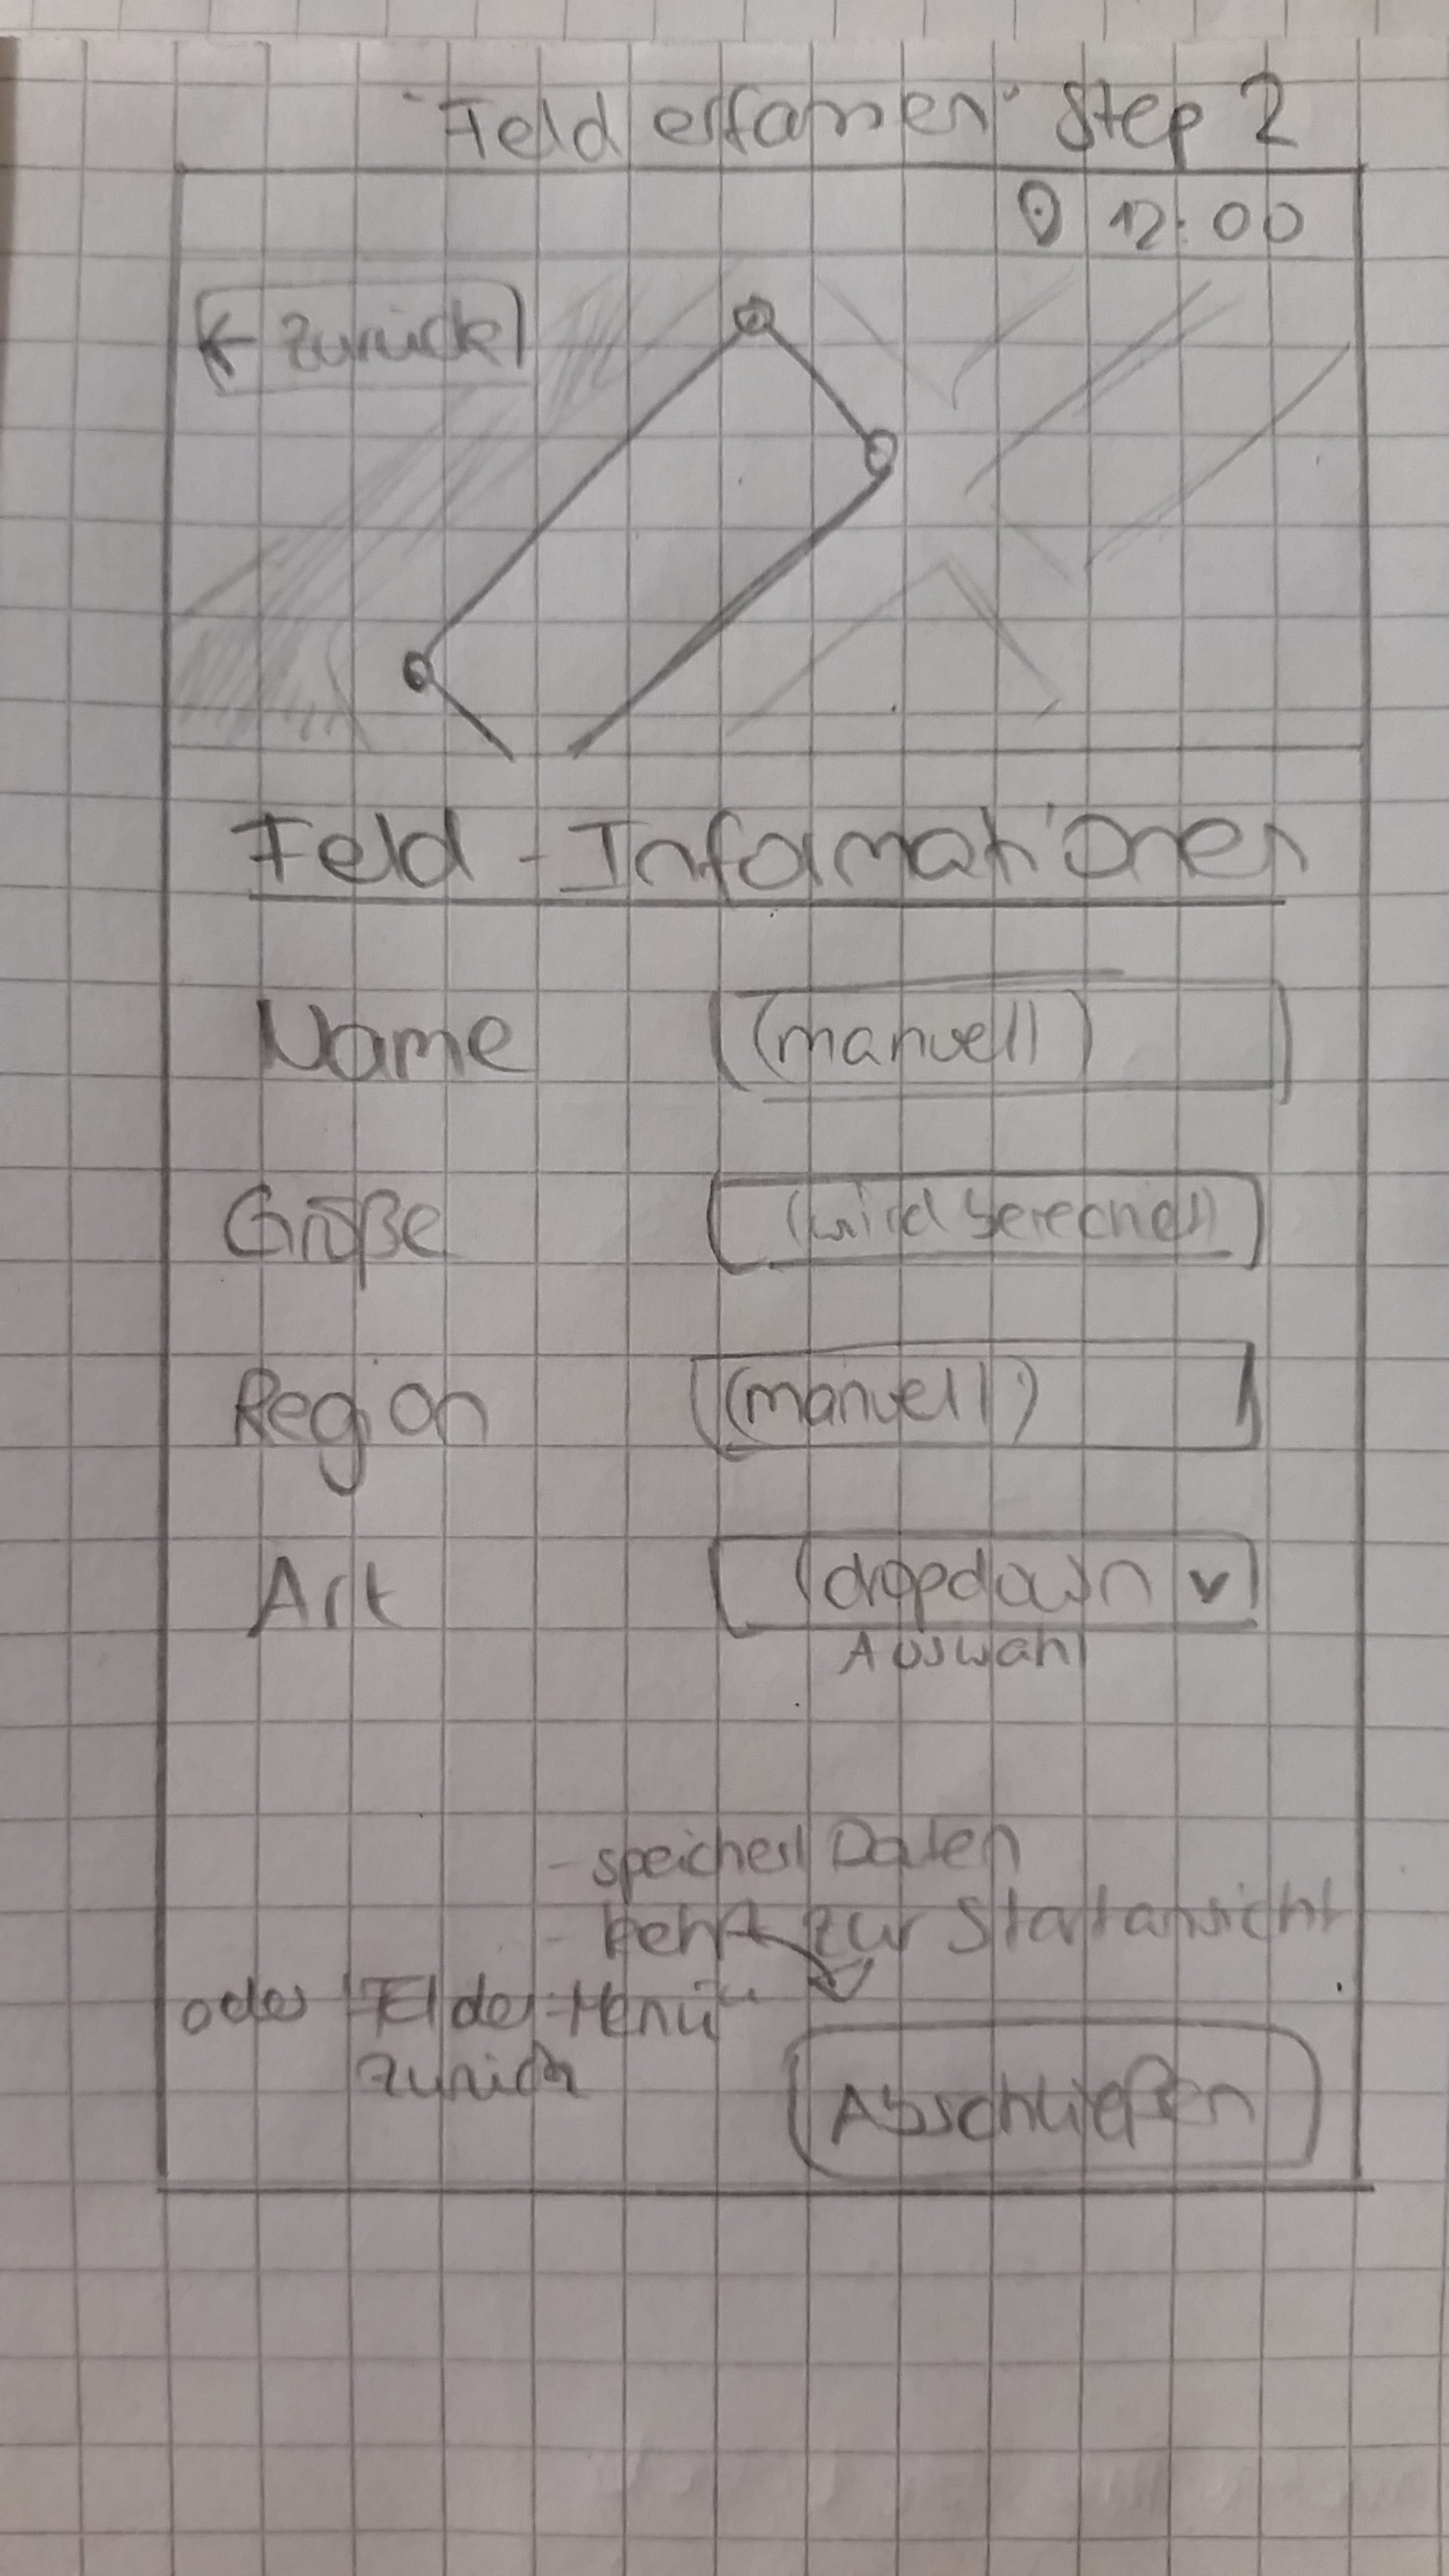 "Feld erfassen" Step 2
12:00
← zurück
Feld-Informationen
Name (manuell)
Größe (wird berechnet)
Region (manuell)
Art (dropdown v
Auswahl
- speichert Daten
- kehrt zur Startansicht
oder "Felder-Menü"
zurück
Abschließen